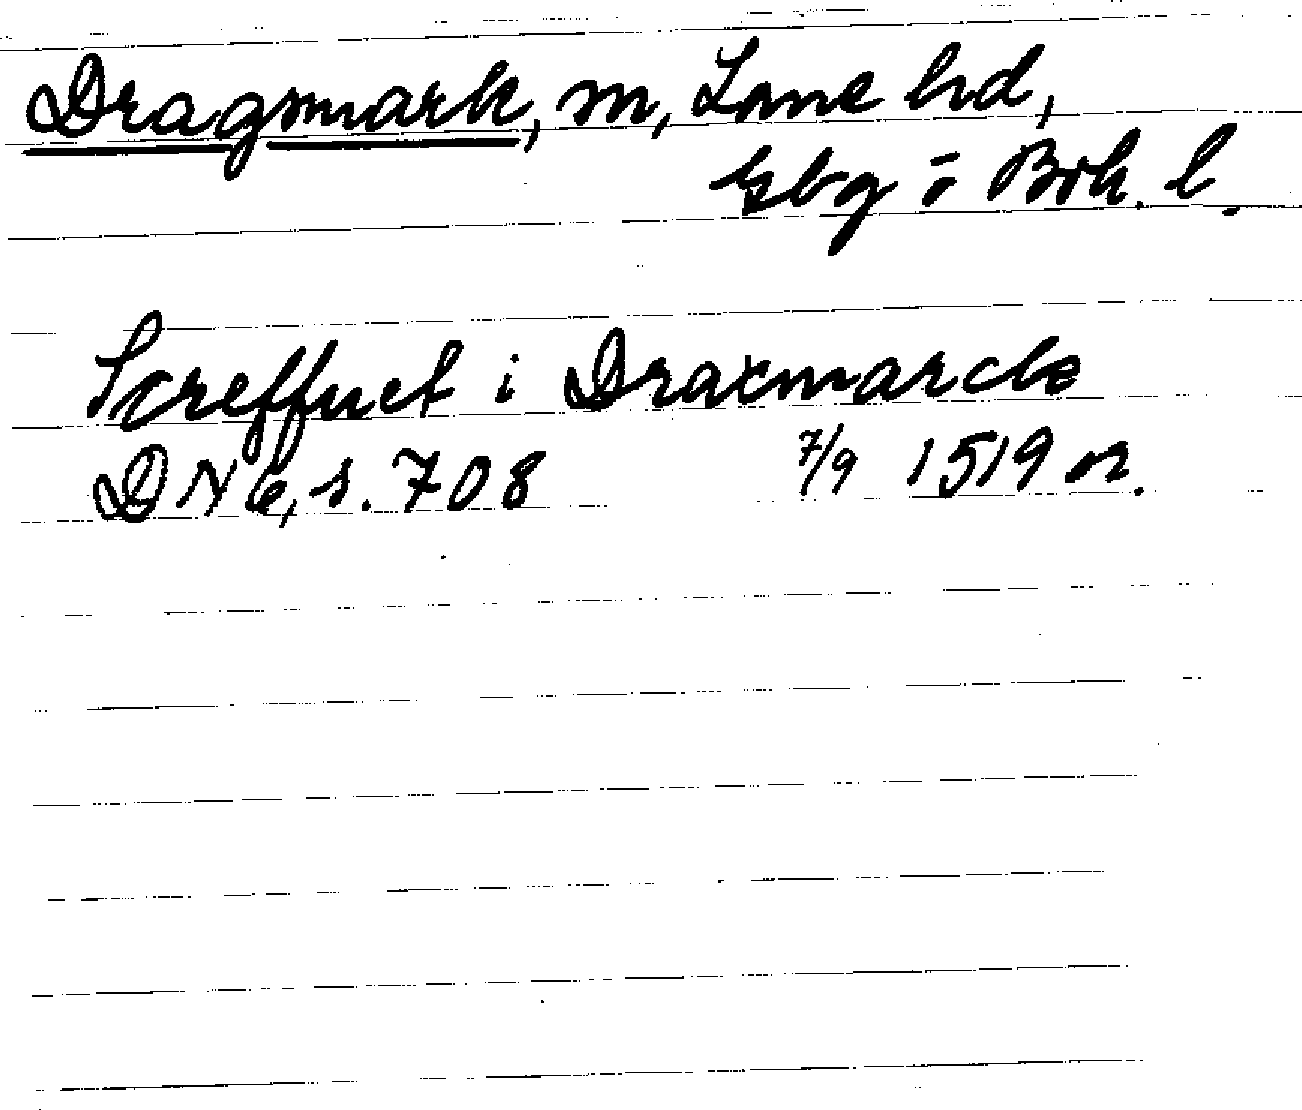 Dragsmark, sn, Lane hd,
Gbg o Boh. l.
Screffuet i Draxmarcke
DN 6, s. 708 7/9 1519 or.